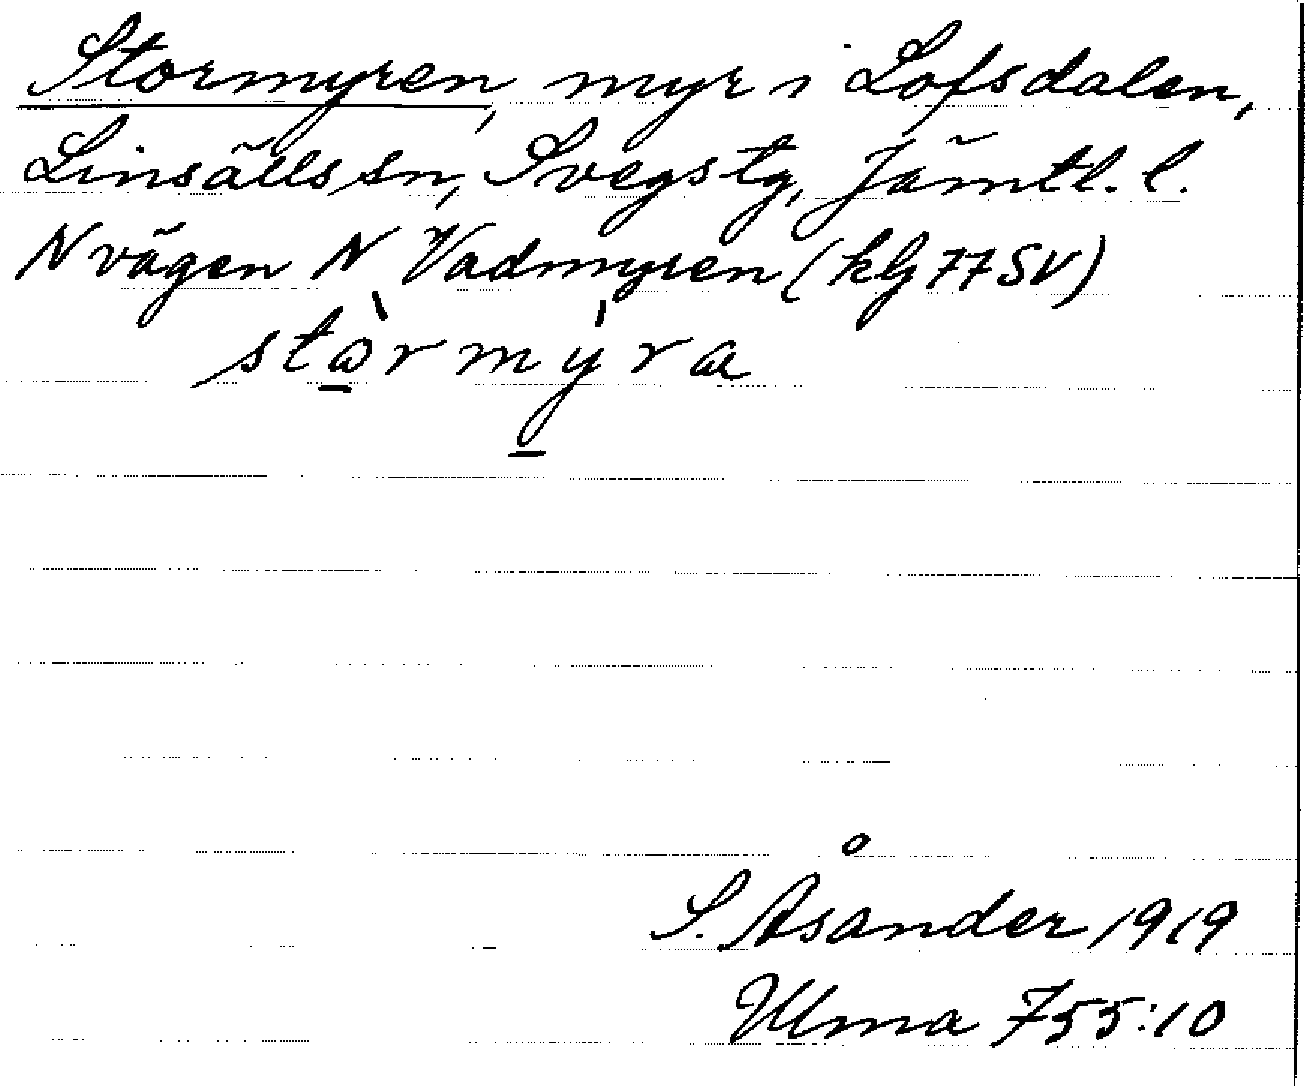 Stormyren, myr i Lofsdalen,
Linsälls sn, Svegs tg, Jämtl. l.
N vägen N Vadmyren (kbj 77 SV)
stòrmýra
S. Åsander 1919
Ulma 755:10